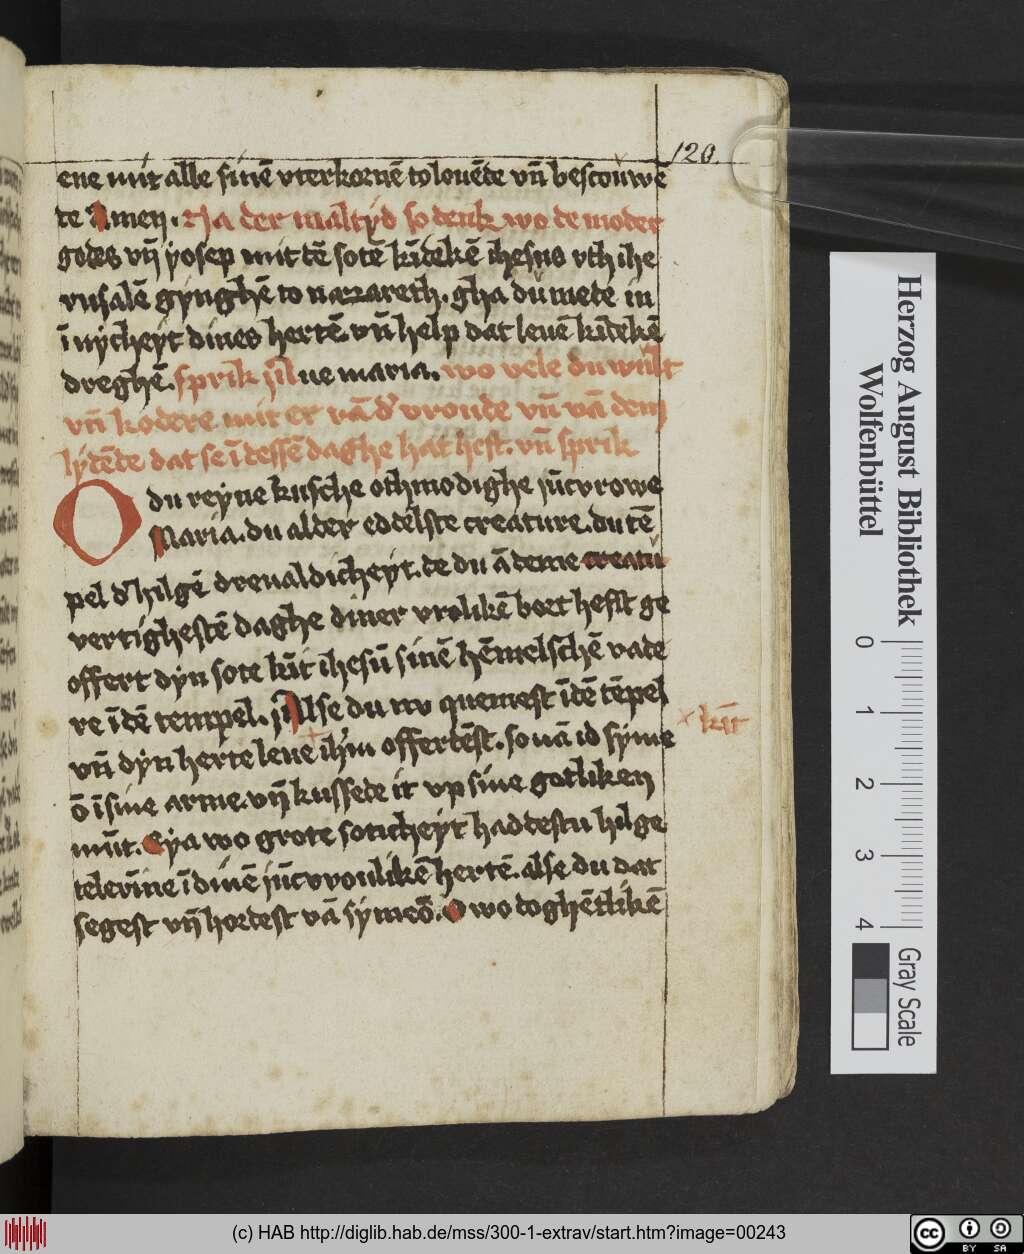 120.
ene mit alle sinē vterkornē to louēde vn̄ bescouwe
te Amen. Na der maltyd so denk wo de moder
godes vn̄ yosep mit dē sotē kīdekē ihesus vth ihe
rusalē gynghē to nazzareth. gha du mede in
īnycheyt dines hertē. vn̄ help dat leuē kīdekē
dreghē. sprik iij aue maria. wo vele du wult
vn̄ kodere mit er vā d' vronde vn̄ vā dem
lydēde dat se ī dessē daghe hat heft. vn̄ sprik
O du reyne kusche othmodighe iūcvrowe
Maria. du alder eddelste creature. du tē
pel d' hilgē dreualdicheyt. de du ā deme creatu
vertighestē daghe diner vrolikē bort hefst ge
offert dyn sote kīt ihesū sinē hēmelschē vade
re ī dē tempel. Alse du nv quemest ī dē tēpel
vn̄ dyn herte leue ihm offertēst. so nā id syme
× kīt
ō ī sine arme. vn̄ kussede it vp sine gotliken
mūt. Eya wo grote soticheyt haddestu hilge
telerīne ī dinē iūcvroulikē hertē. alse du dat
segest vn̄ hordest vā symeō. O wo doghētlikē
Herzog August Bibliothek
Wolfenbüttel
0 1 2 3 4
Gray Scale
(c) HAB http://diglib.hab.de/mss/300-1-extrav/start.htm?image=00243
cc BY SA